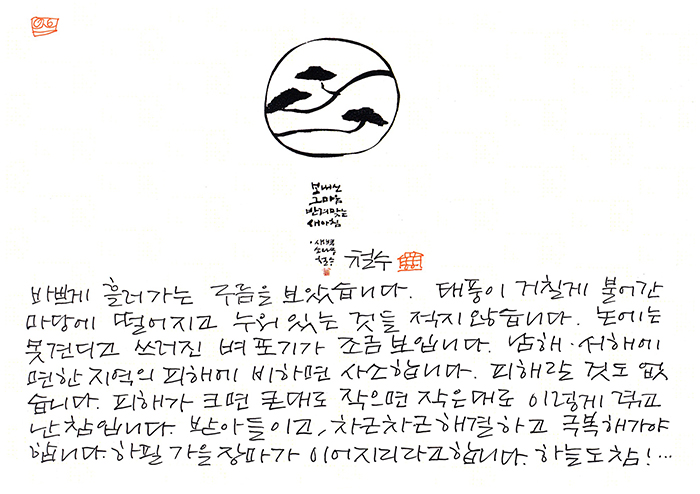 보내신
그 마음
반려맞는
새아침
철수
바쁘게 흘러가는 구름을 보았습니다. 태풍이 거칠게 불어간
마당에 떨어지고 누워있는 것들 적지 않습니다. 논에는
못견디고 쓰러진 벼 포기가 조금 보입니다. 남해·서해에
면한 지역의 피해에 비하면 사소합니다. 피해랄 것도 없
습니다. 피해가 크면 큰대로 작으면 작은대로 이렇게 겪고
난 참입니다. 받아들이고, 차근차근 해결하고 극복해가야
합니다. 하필 가을장마가 이어지리라고 합니다. 하늘도 참!…